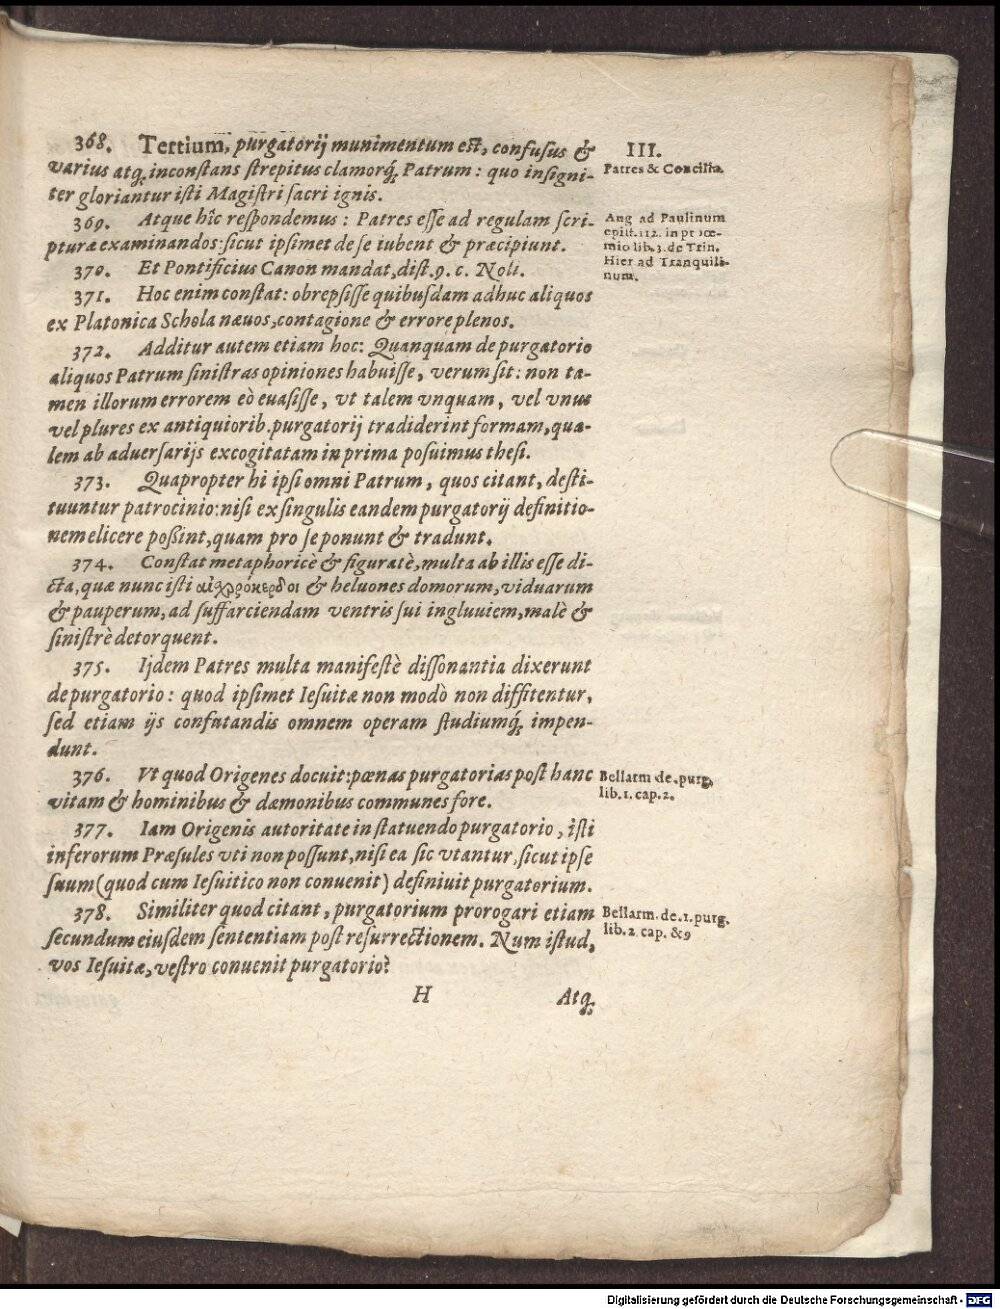 368. Tertium, purgatorij munimentum est, confusus &
varius atq; inconstans strepitus clamorq́; Patrum: quo insigni-
ter gloriantur isti Magistri sacri ignis.
III.
Patres & Concilia.
369. Atque hîc respondemus: Patres esse ad regulam scri-
pturæ examinandos: sicut ipsimet de se iubent & præcipiunt.
Aug ad Paulinum
epist. 112. in prooe-
mio lib. 3. de Trin.
Hier ad Tranquili-
num.
370. Et Pontificius Canon mandat, dist. 9. c. Noli.
371. Hoc enim constat: obrepsisse quibusdam adhuc aliquos
ex Platonica Schola næuos, contagione & errore plenos.
372. Additur autem etiam hoc: Quanquam de purgatorio
aliquos Patrum sinistras opiniones habuisse, verum sit: non ta-
men illorum errorem eò euasisse, vt talem vnquam, vel vnus
vel plures ex antiquiorib. purgatorij tradiderint formam, qua-
lem ab aduersarijs excogitatam in prima posuimus thesi.
373. Quapropter hi ipsi omni Patrum, quos citant, desti-
tuuntur patrocinio: nisi ex singulis eandem purgatorij definitio-
nem elicere poßint, quam pro se ponunt & tradunt.
374. Constat metaphoricè & figuratè, multa ab illis esse di-
cta, quæ nunc isti αἰχρόκερδοι & heluones domorum, viduarum
& pauperum, ad suffarciendam ventris sui ingluuiem, malè &
sinistrè detorquent.
375. Ijdem Patres multa manifestè dissonantia dixerunt
de purgatorio: quod ipsimet Iesuitæ non modò non diffitentur,
sed etiam ijs confutandis omnem operam studiumq́; impen-
dunt.
376. Vt quod Origenes docuit: pœnas purgatorias post hanc
vitam & hominibus & dæmonibus communes fore.
Bellarm. de. purg.
lib. 1. cap. 2.
377. Iam Origenis autoritate in statuendo purgatorio, isti
inferorum Præsules vti non possunt, nisi ea sic vtantur, sicut ipse
suum (quod cum Iesuitico non conuenit) definiuit purgatorium.
378. Similiter quod citant, purgatorium prorogari etiam
secundum eiusdem sententiam post resurrectionem. Num istud,
vos Iesuitæ, vestro conuenit purgatorio?
Bellarm. de. 1. purg.
lib. 2. cap. & 9
H Atq;
Digitalisierung gefördert durch die Deutsche Forschungsgemeinschaft - DFG